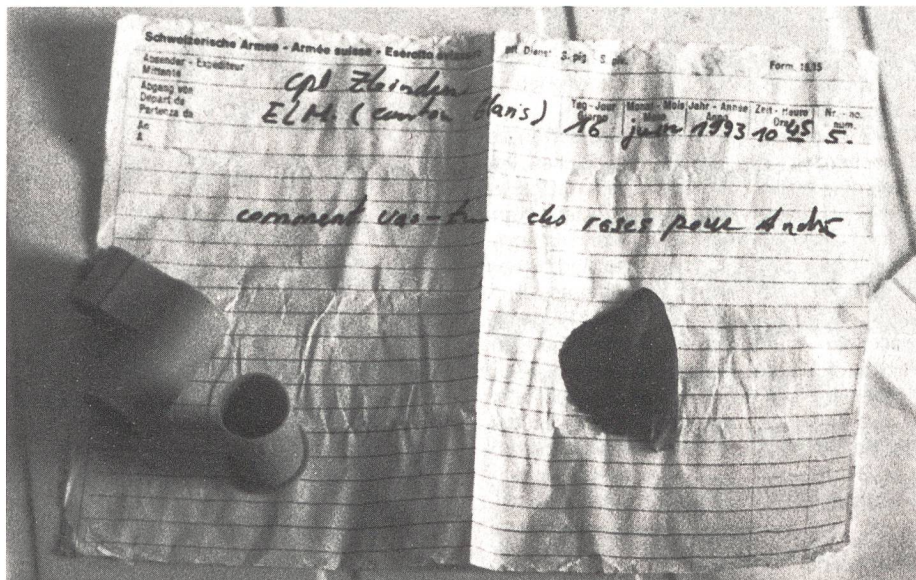 Schweizerische Armee - Armée suisse - Esercito svizzero
Dienst S. pig. S. pik. Form. 16.15
Absender - Expéditeur
Mittente
cpl
Abgang von
Départ de
Partenza da
ELM. (canton Glaris)
An
A
Tag - Jour Giorno Monat - Mois Mese Jahr - Année Anno Zeit - Heure Ora Nr. - no. num.
16 juin 1993 10 45 5.
comment vas-tu des roses pour André